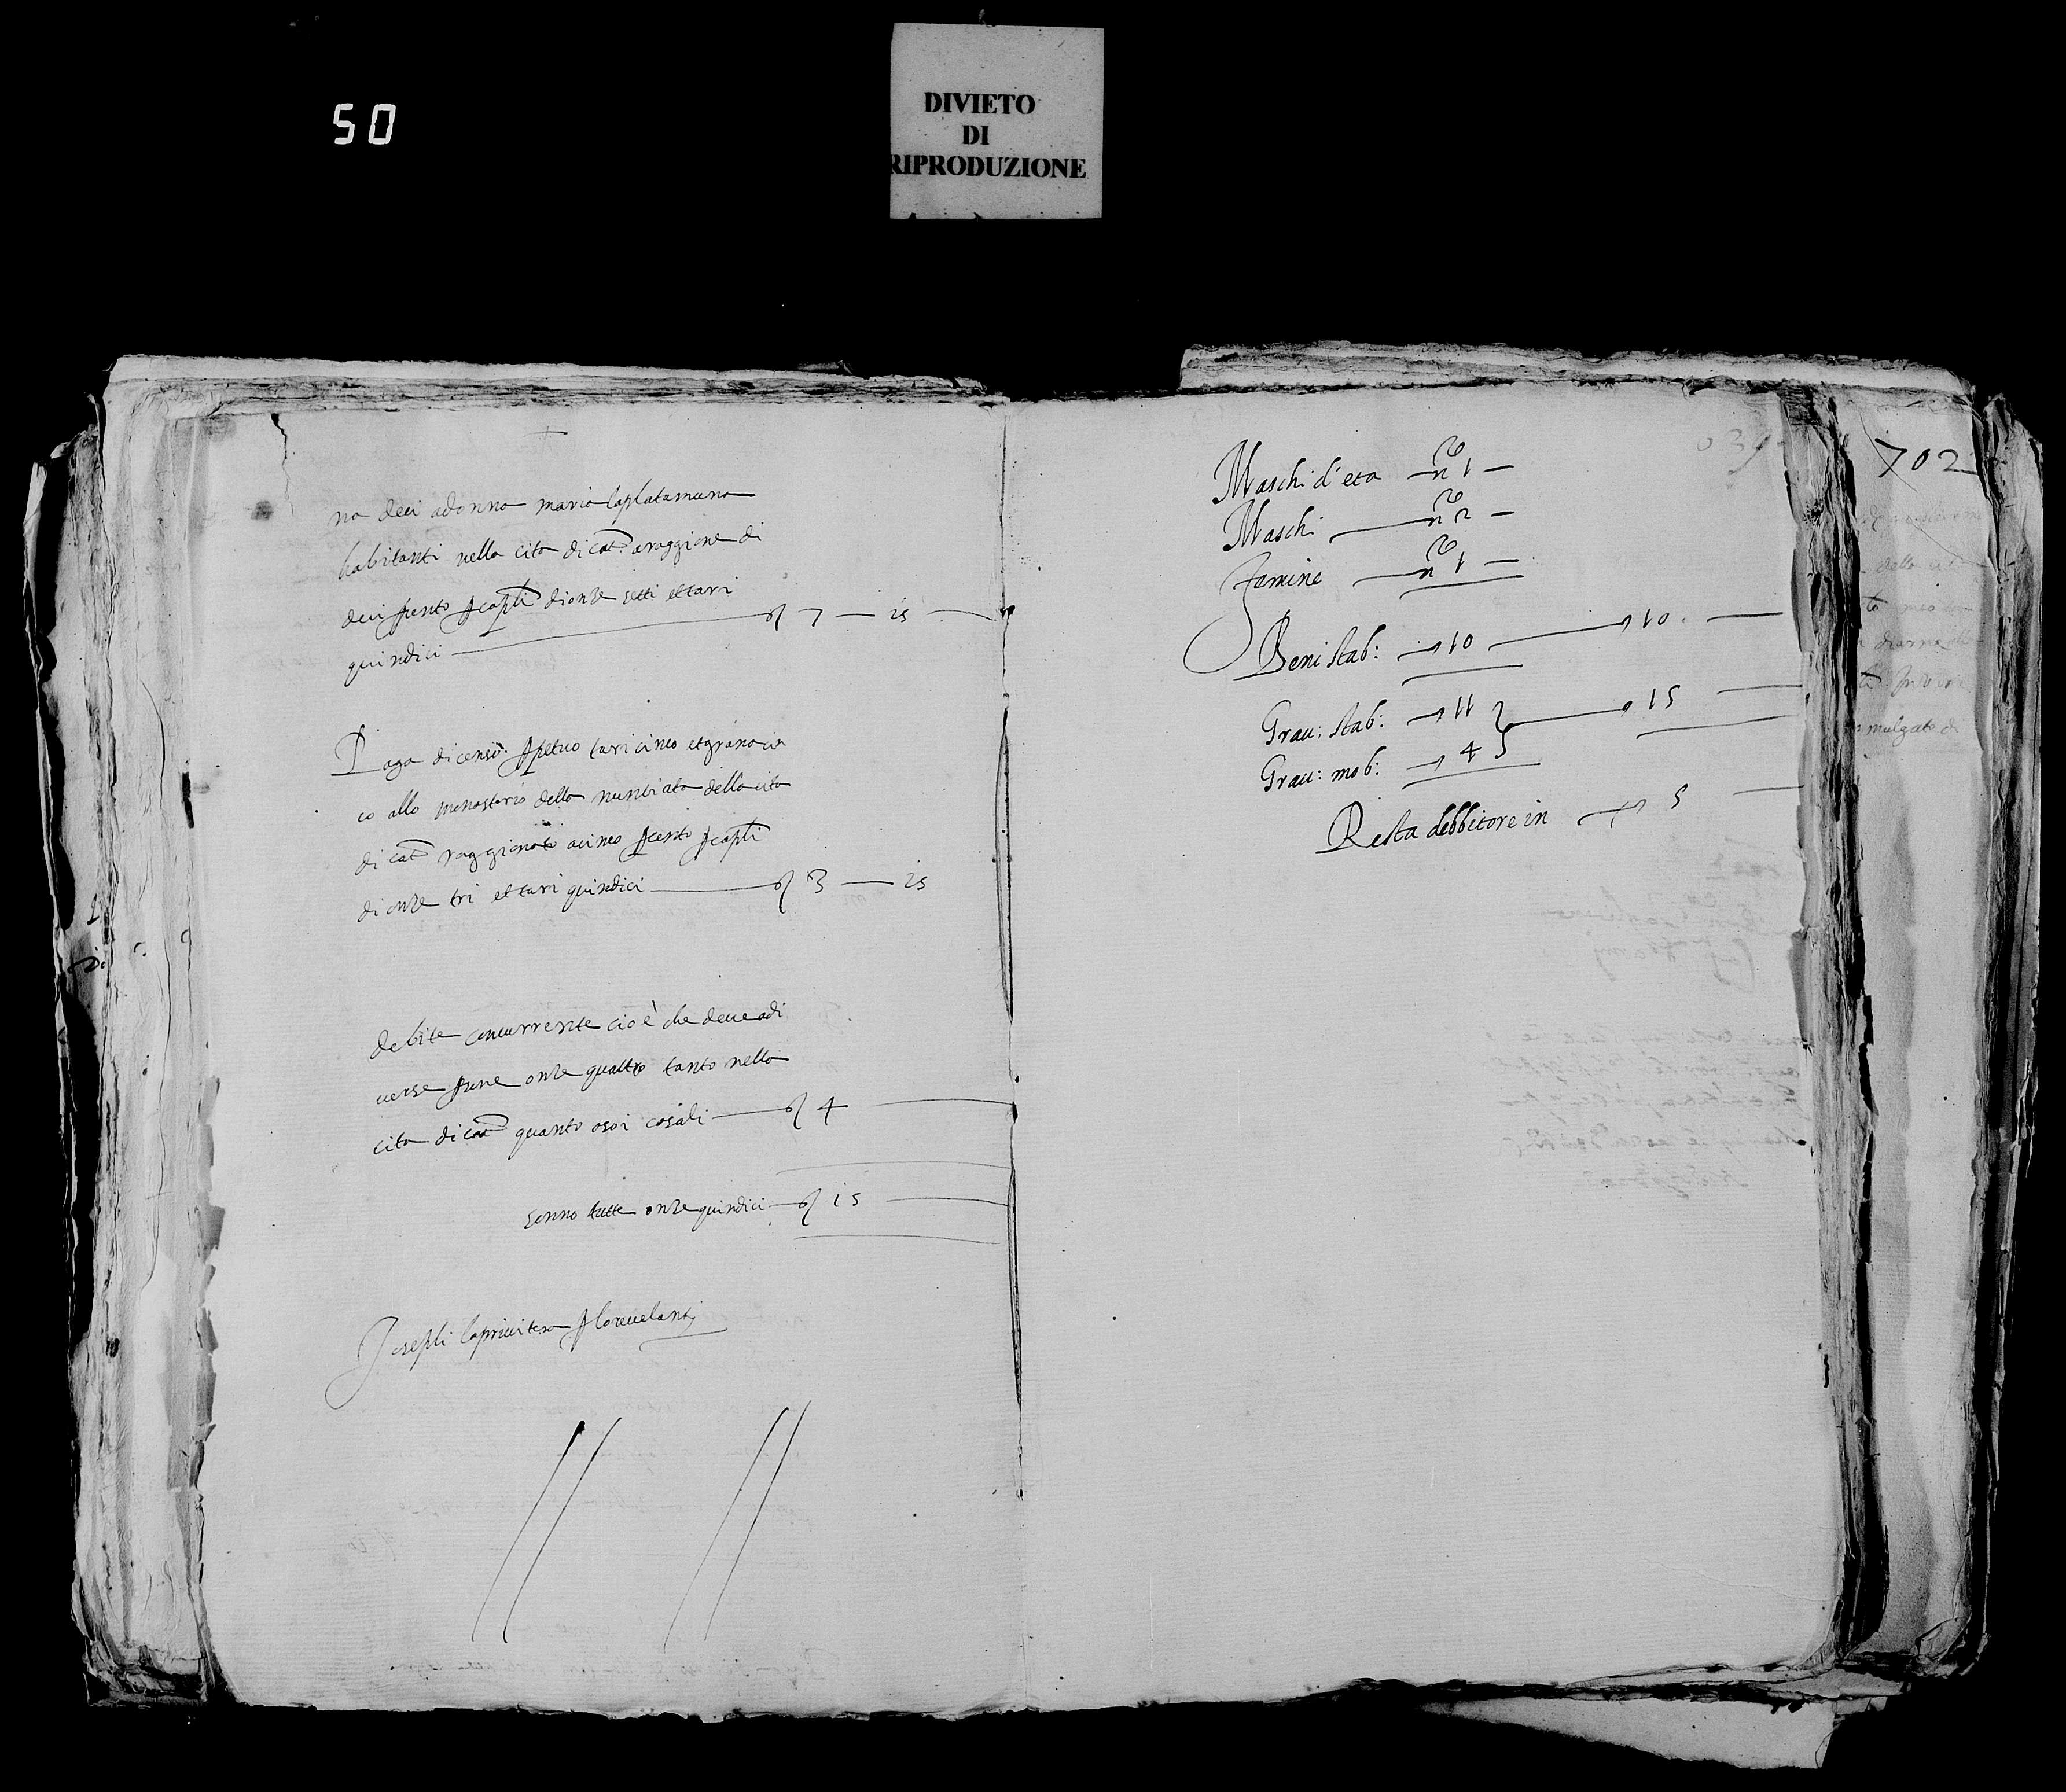 50
DIVIETO
DI
RIPRODUZIONE
na deci a donna maria la platamuna
habitanti nella cita di cat.a a raggione di
deci per cento per capli di onze setti et tari
quindici 7 — 15
Paga di censo perpetuo tari cinco et grano cin
co allo monasterio della nuntiata della cita
di cat.a raggionato a cinco per cento per capli
di onze tri et tari quindici 3 — 15
debite concurrente cio è che deve a di
verse persune onze quattro tanto nella
cita di cat.a quanto a soi casali 4
sonno tutte onze quindici 15
Joseph la privitera
702
Maschi d'eta — n.ro 1 —
Maschi — n.ro 2 —
Femine — n.ro 1 —
Beni stab: 10 — 10 . —
Grav: stab: 11 — 15 —
Grav: mob: 4
Resta debbitore in 5 —